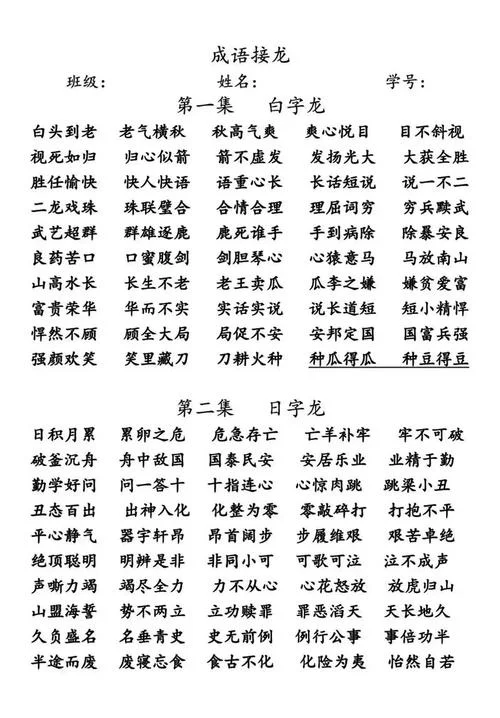 成语接龙
班级： 姓名： 学号：
第一集 白字龙
白头到老 老气横秋 秋高气爽 爽心悦目 目不斜视
视死如归 归心似箭 箭不虚发 发扬光大 大获全胜
胜任愉快 快人快语 语重心长 长话短说 说一不二
二龙戏珠 珠联璧合 合情合理 理屈词穷 穷兵黩武
武艺超群 群雄逐鹿 鹿死谁手 手到病除 除暴安良
良药苦口 口蜜腹剑 剑胆琴心 心猿意马 马放南山
山高水长 长生不老 老王卖瓜 瓜李之嫌 嫌贫爱富
富贵荣华 华而不实 实话实说 说长道短 短小精悍
悍然不顾 顾全大局 局促不安 安邦定国 国富兵强
强颜欢笑 笑里藏刀 刀耕火种 种瓜得瓜 种豆得豆
第二集 日字龙
日积月累 累卵之危 危急存亡 亡羊补牢 牢不可破
破釜沉舟 舟中敌国 国泰民安 安居乐业 业精于勤
勤学好问 问一答十 十指连心 心惊肉跳 跳梁小丑
丑态百出 出神入化 化整为零 零敲碎打 打抱不平
平心静气 器宇轩昂 昂首阔步 步履维艰 艰苦卓绝
绝顶聪明 明辨是非 非同小可 可歌可泣 泣不成声
声嘶力竭 竭尽全力 力不从心 心花怒放 放虎归山
山盟海誓 势不两立 立功赎罪 罪恶滔天 天长地久
久负盛名 名垂青史 史无前例 例行公事 事倍功半
半途而废 废寝忘食 食古不化 化险为夷 怡然自若